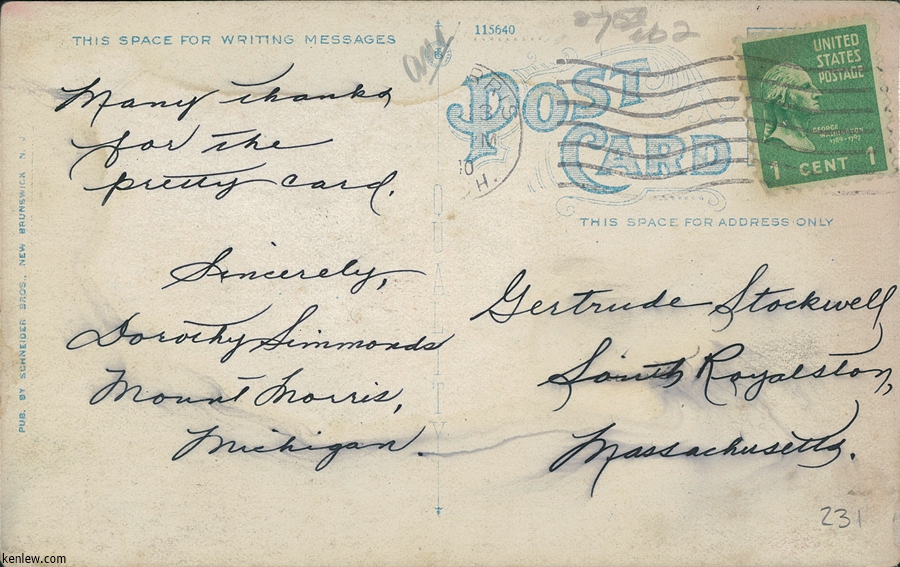 THIS SPACE FOR WRITING MESSAGES
Many thanks
for the
pretty card.
Sincerely,
Dorothy Simmonds
Mount Morris,
Michigan.
PUB. BY SCHNEIDER BROS., NEW BRUNSWICK N. J.
115640
POST
CARD
THIS SPACE FOR ADDRESS ONLY
UNITED
STATES
POSTAGE
GEORGE
WASHINGTON
1789-1797
1 CENT 1
Gertrude Stockwell
South Royalston,
Massachusetts.
231
kenlew.com